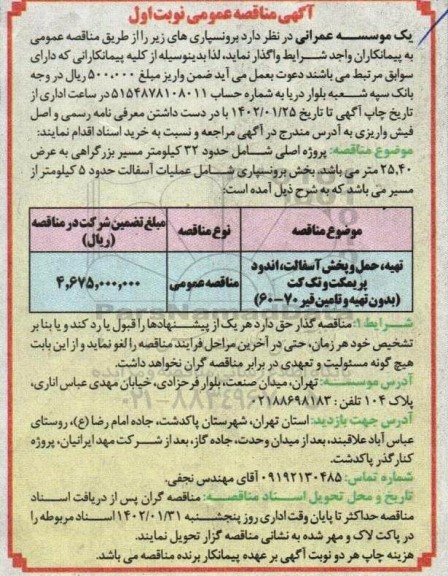 آگهی مناقصه عمومی نوبت اول
یک موسسه عمرانی در نظر دارد برونسپاری های زیر را از طریق مناقصه عمومی
به پیمانکاران واجد شرایط واگذار نماید، لذا بدینوسیله از کلیه پیمانکارانی که دارای
سوابق مرتبط می باشند دعوت بعمل می آید ضمن واریز مبلغ ۵۰۰.۰۰۰ ریال در وجه
بانک سپه شعبه بلوار دریا به شماره حساب ۵۱۵۴۸۷۸۱۰۸۰۱۱ در ساعت اداری از
تاریخ چاپ آگهی تا تاریخ ۱۴۰۲/۰۱/۲۵ با در دست داشتن معرفی نامه رسمی و اصل
فیش واریزی به آدرس مندرج در آگهی مراجعه و نسبت به خرید اسناد اقدام نمایند:
موضوع مناقصه: پروژه اصلی شامل حدود ۳۲ کیلومتر مسیر بزرگراهی به عرض
۲۵,۴۰ متر می باشد. بخش برونسپاری شامل عملیات آسفالت حدود ۵ کیلومتر از
مسیر می باشد که به شرح ذیل آمده است:
موضوع مناقصه نوع مناقصه مبلغ تضمین شرکت در مناقصه (ریال)
تهیه، حمل و پخش آسفالت، اندود
پریمکت و تک کت
(بدون تهیه و تامین قیر ۷۰-۶۰)
مناقصه عمومی
۴,۶۷۵,۰۰۰,۰۰۰
شرایط: ۱: مناقصه گذار حق دارد هر یک از پیشنهادها را قبول یا رد کند و یا بنا بر
تشخیص خود هر زمان، حتی در آخرین مراحل فرآیند مناقصه را لغو نماید و از این بابت
هیچ گونه مسئولیت و تعهدی در برابر مناقصه گران نخواهد داشت.
آدرس موسسه: تهران، میدان صنعت، بلوار فرحزادی، خیابان مهدی عباس اناری،
پلاک ۱۰۴ تلفن: ۰۲۱۸۸۶۹۸۱۸۳
آدرس جهت بازدید: استان تهران، شهرستان پاکدشت، جاده امام رضا (ع)، روستای
عباس آباد علاقبند، بعد از میدان وحدت، جاده گاز، بعد از شرکت مهد ایرانیان، پروژه
کنارگذر پاکدشت.
شماره تماس: ۰۹۱۹۲۱۳۰۴۸۵ آقای مهندس نجفی.
تاریخ و محل تحویل اسناد مناقصه: مناقصه گران پس از دریافت اسناد
مناقصه حداکثر تا پایان وقت اداری روز پنجشنبه ۱۴۰۲/۰۱/۳۱ اسناد مربوطه را
در پاکت لاک و مهر شده به نشانی مناقصه گزار تحویل نمایند.
هزینه چاپ هر دو نوبت آگهی بر عهده پیمانکار برنده مناقصه می باشد.